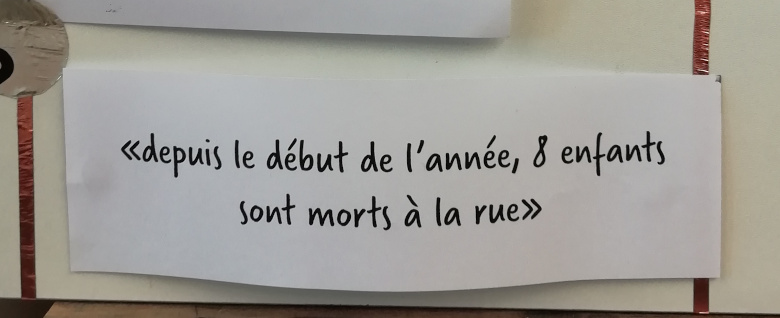 «depuis le début de l'année, 8 enfants
sont morts à la rue»